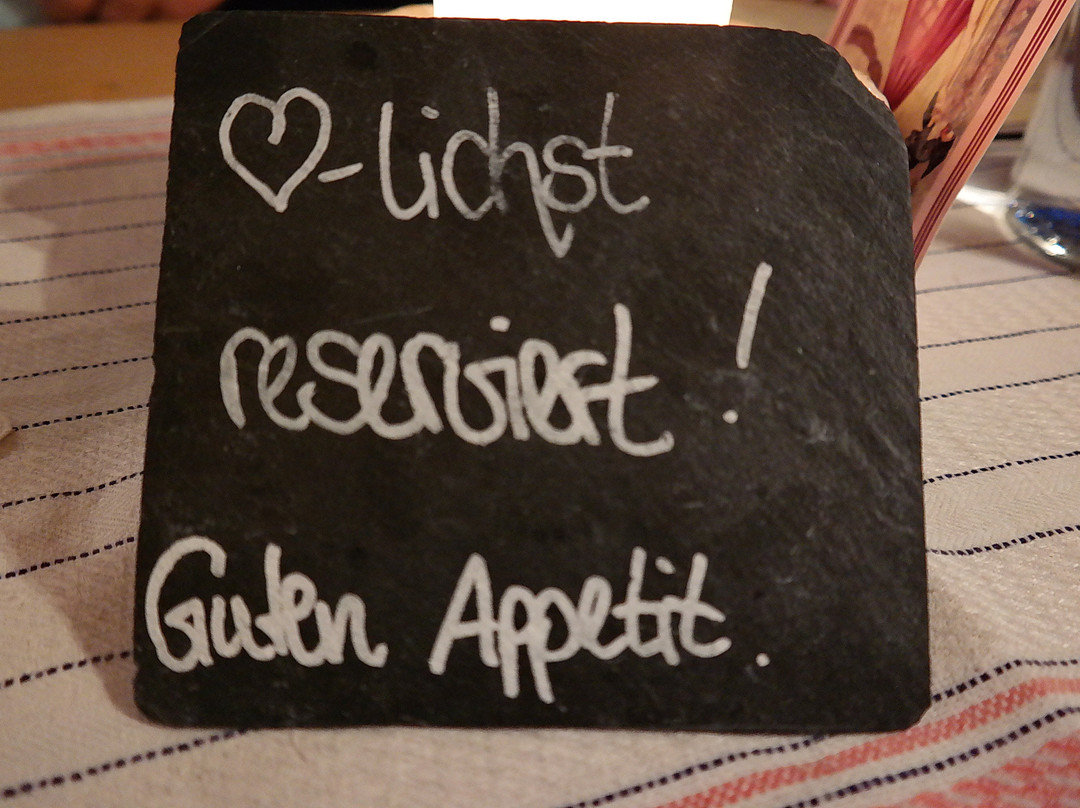 ♡-lichst
reserviert!
Guten Appetit.